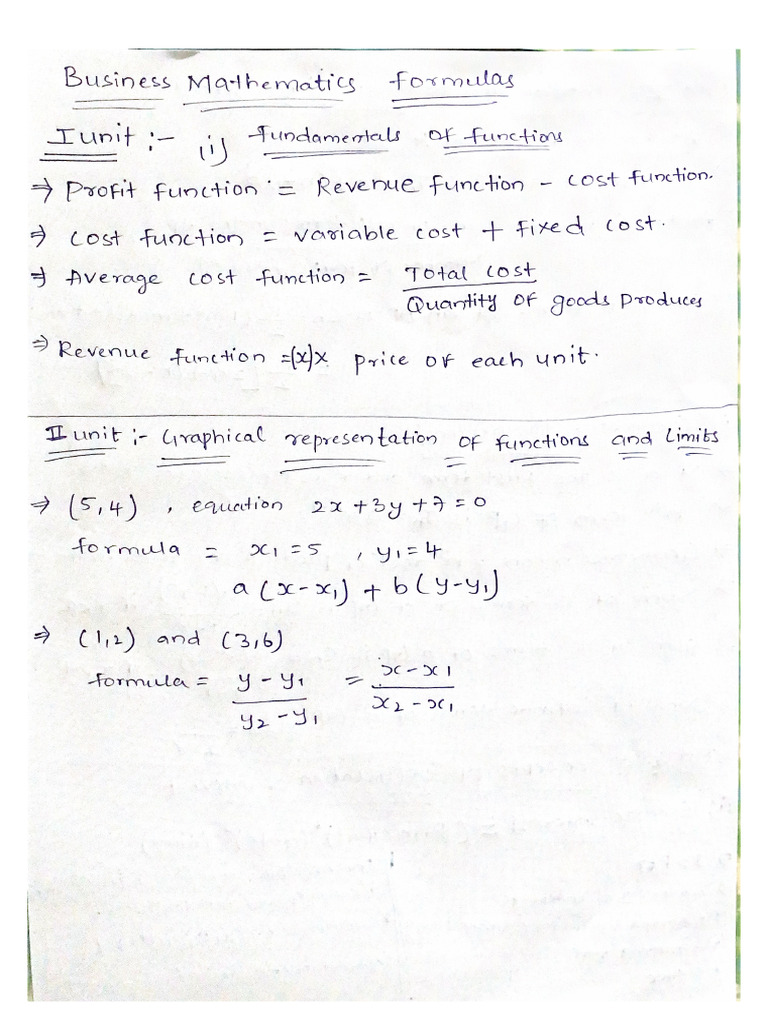 Business Mathematics formulas
I unit :- (i) Fundamentals of functions
⇒ Profit function = Revenue function - cost function.
⇒ cost function = variable cost + fixed cost.
⇒ Average cost function = Total cost
Quantity of goods produces
⇒ Revenue function =(x)x price of each unit.
II unit :- Graphical representation of functions and Limits
⇒ (5,4) , equation 2x+3y+7=0
formula = x₁ =5 , y₁=4
a (x-x₁) + b(y-y₁)
⇒ (1,2) and (3,6)
formula = y - y₁ = x - x₁
y₂ - y₁ x₂ - x₁